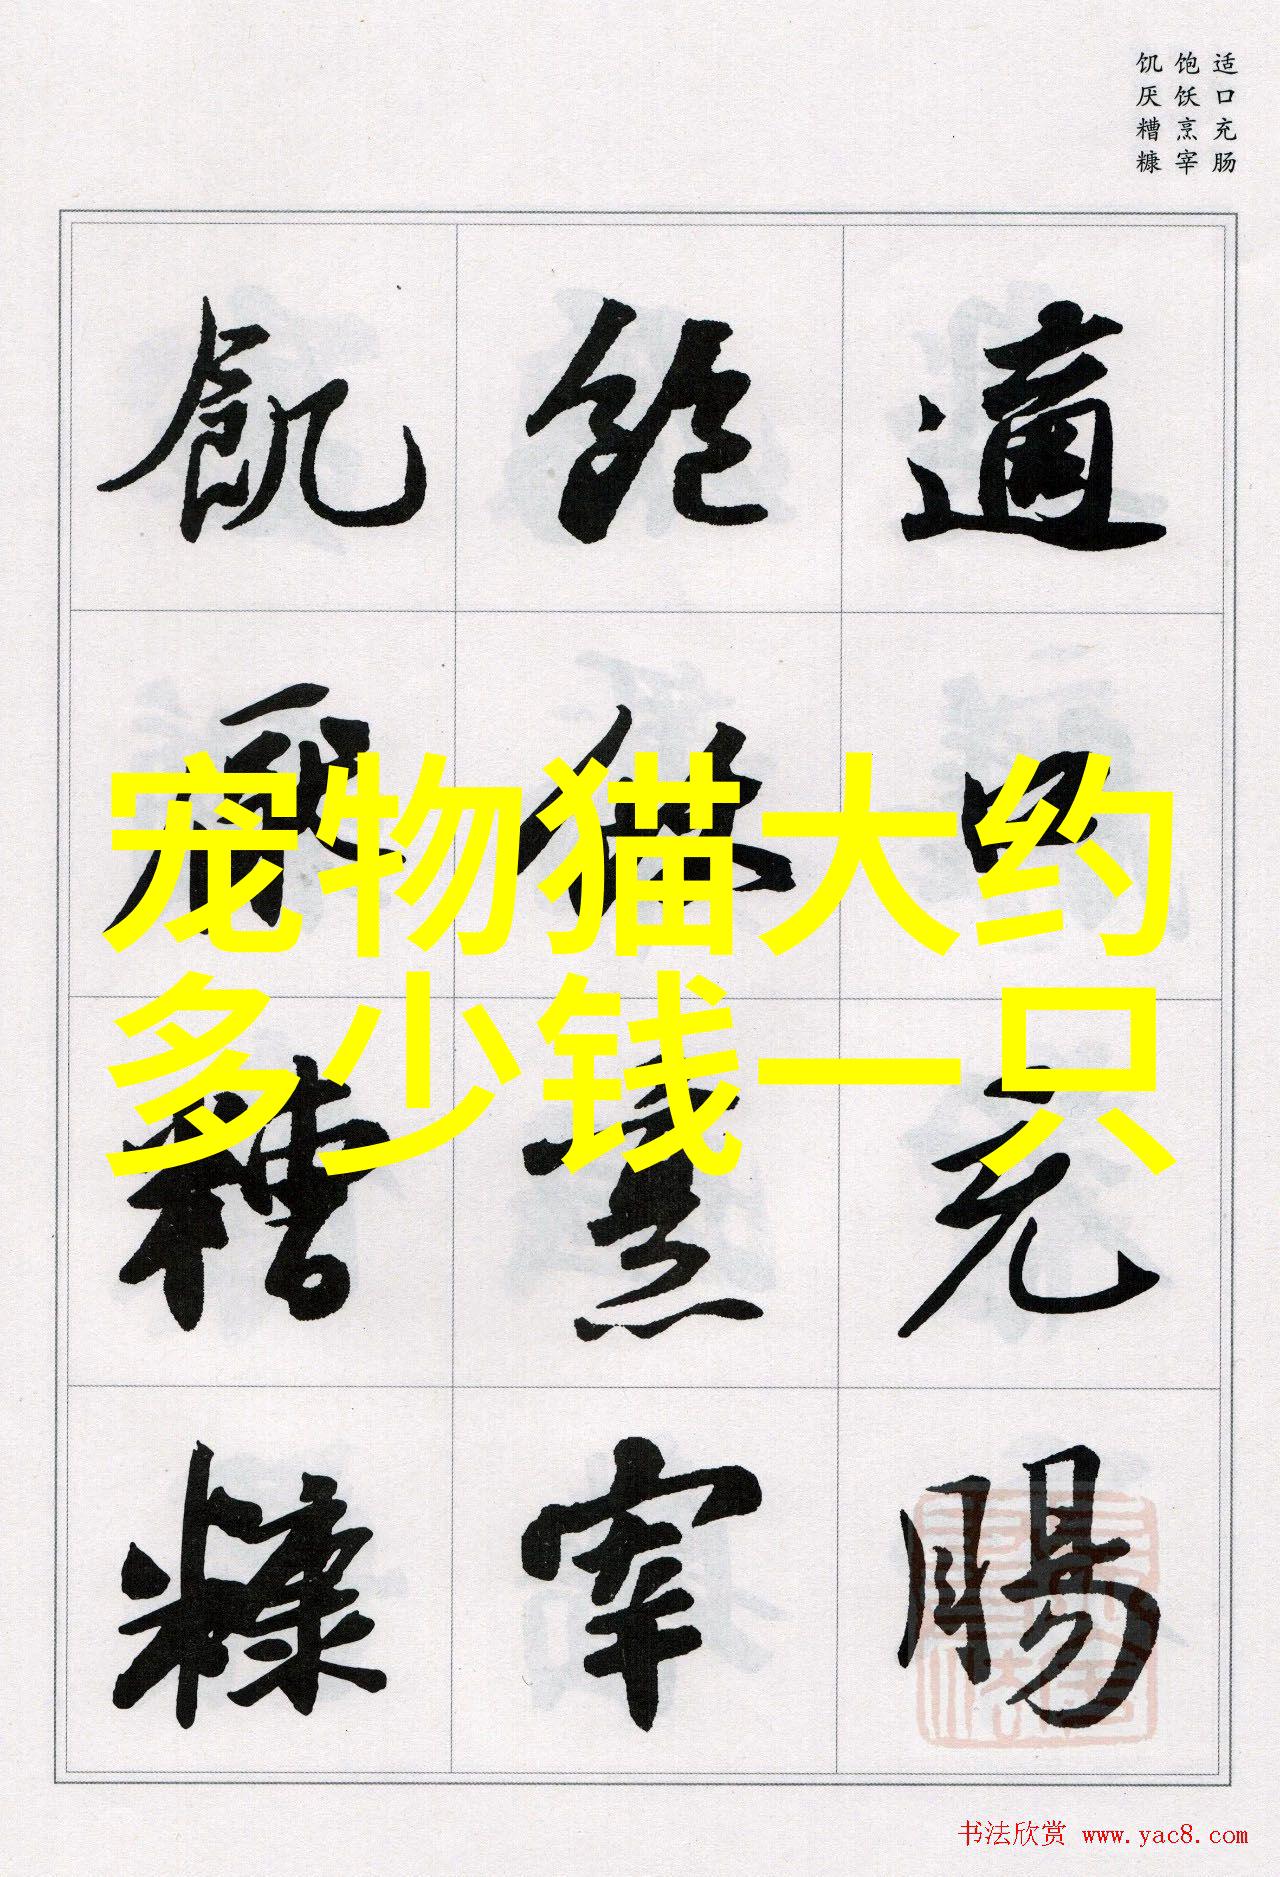 适口充肠
饱饫烹宰
饥厌糟糠
適口充腸
飽飫烹宰
飢厭糟糠
宠物猫大约
多少钱一只
书法欣赏 www.yac8.com